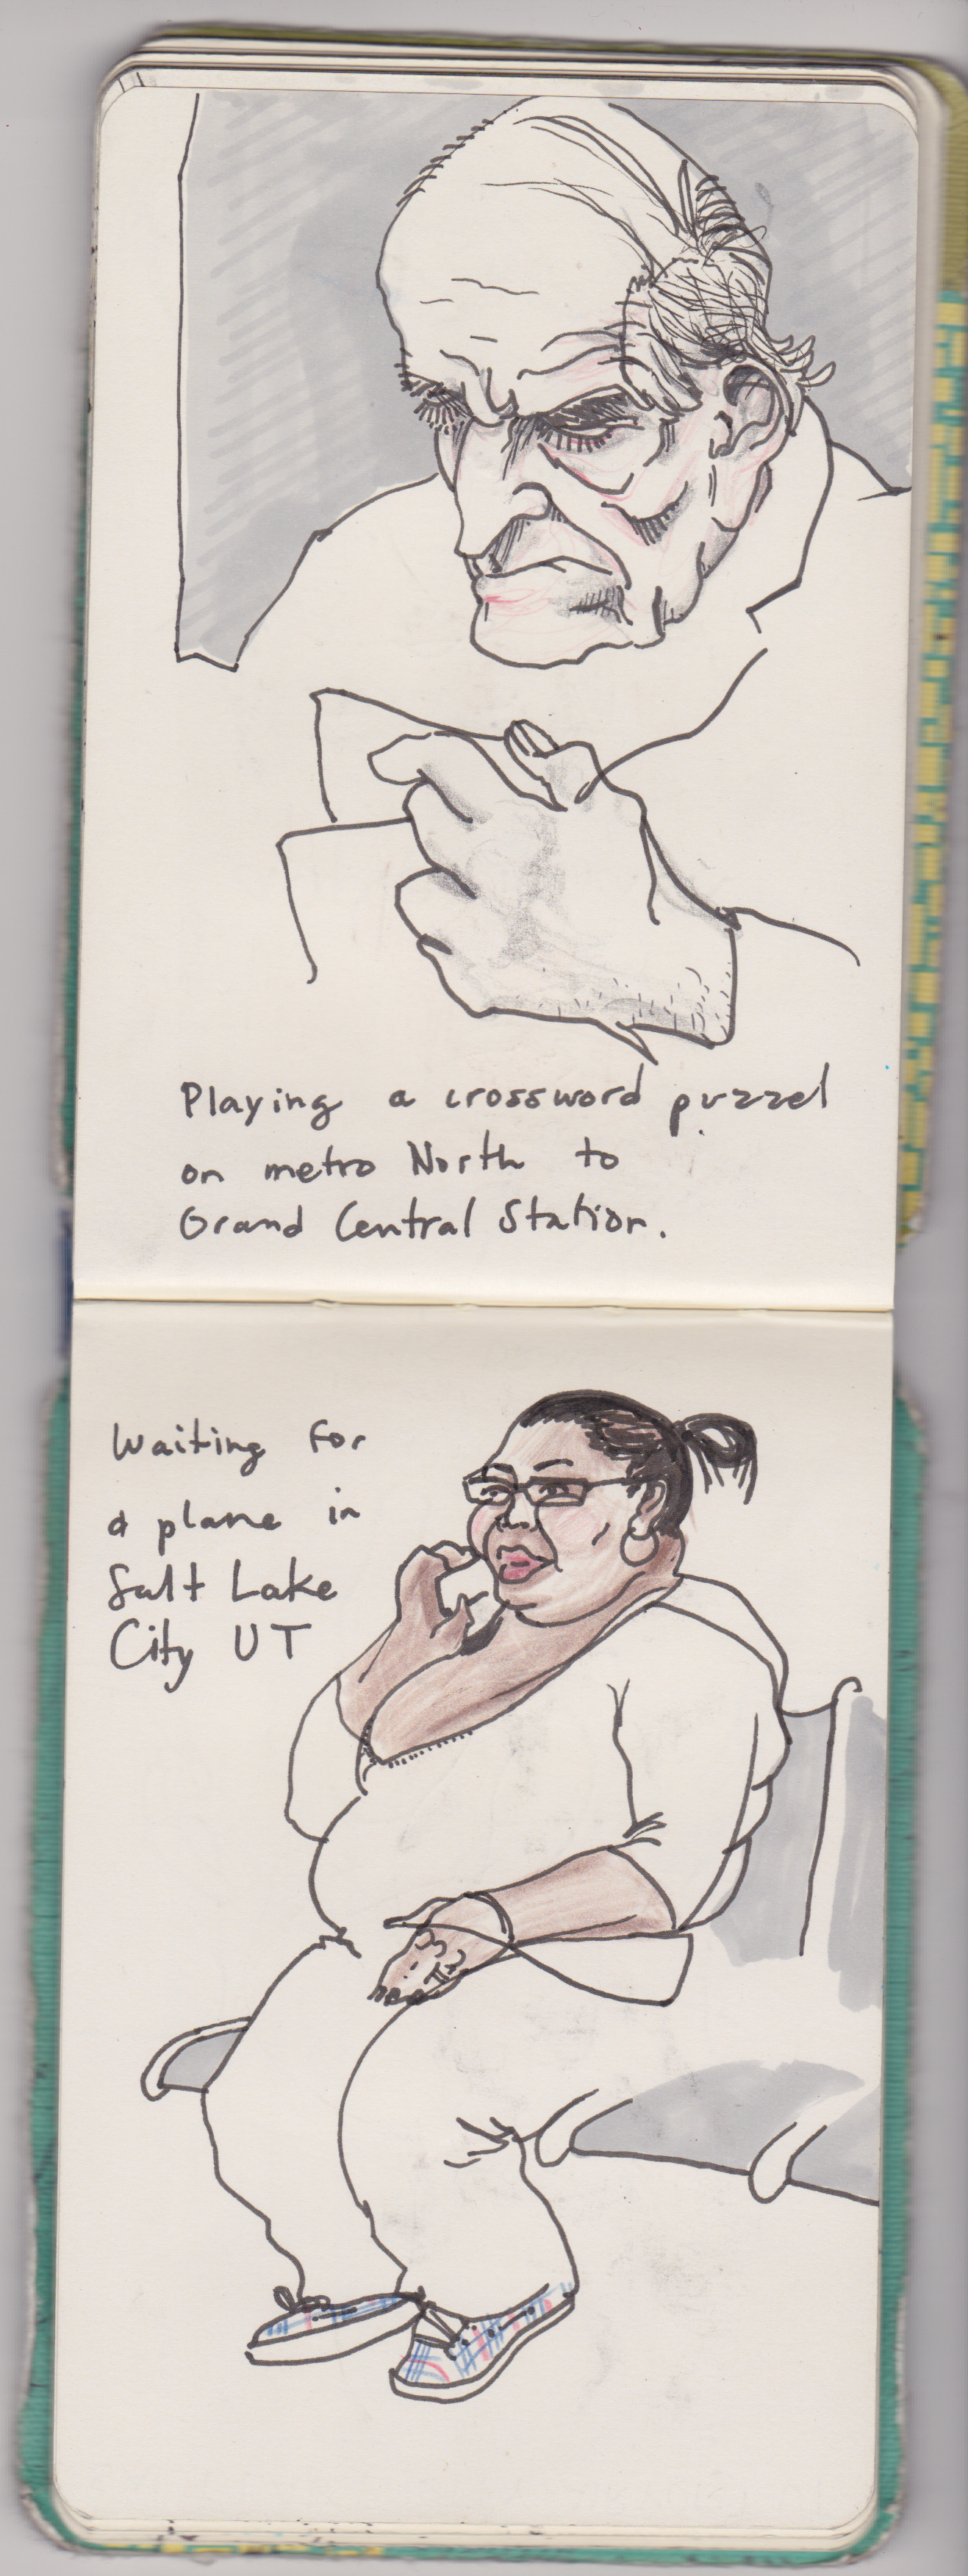 Playing a crossword puzzel
on metro North to
Grand Central Station.
Waiting for
a plane in
Salt Lake
City UT